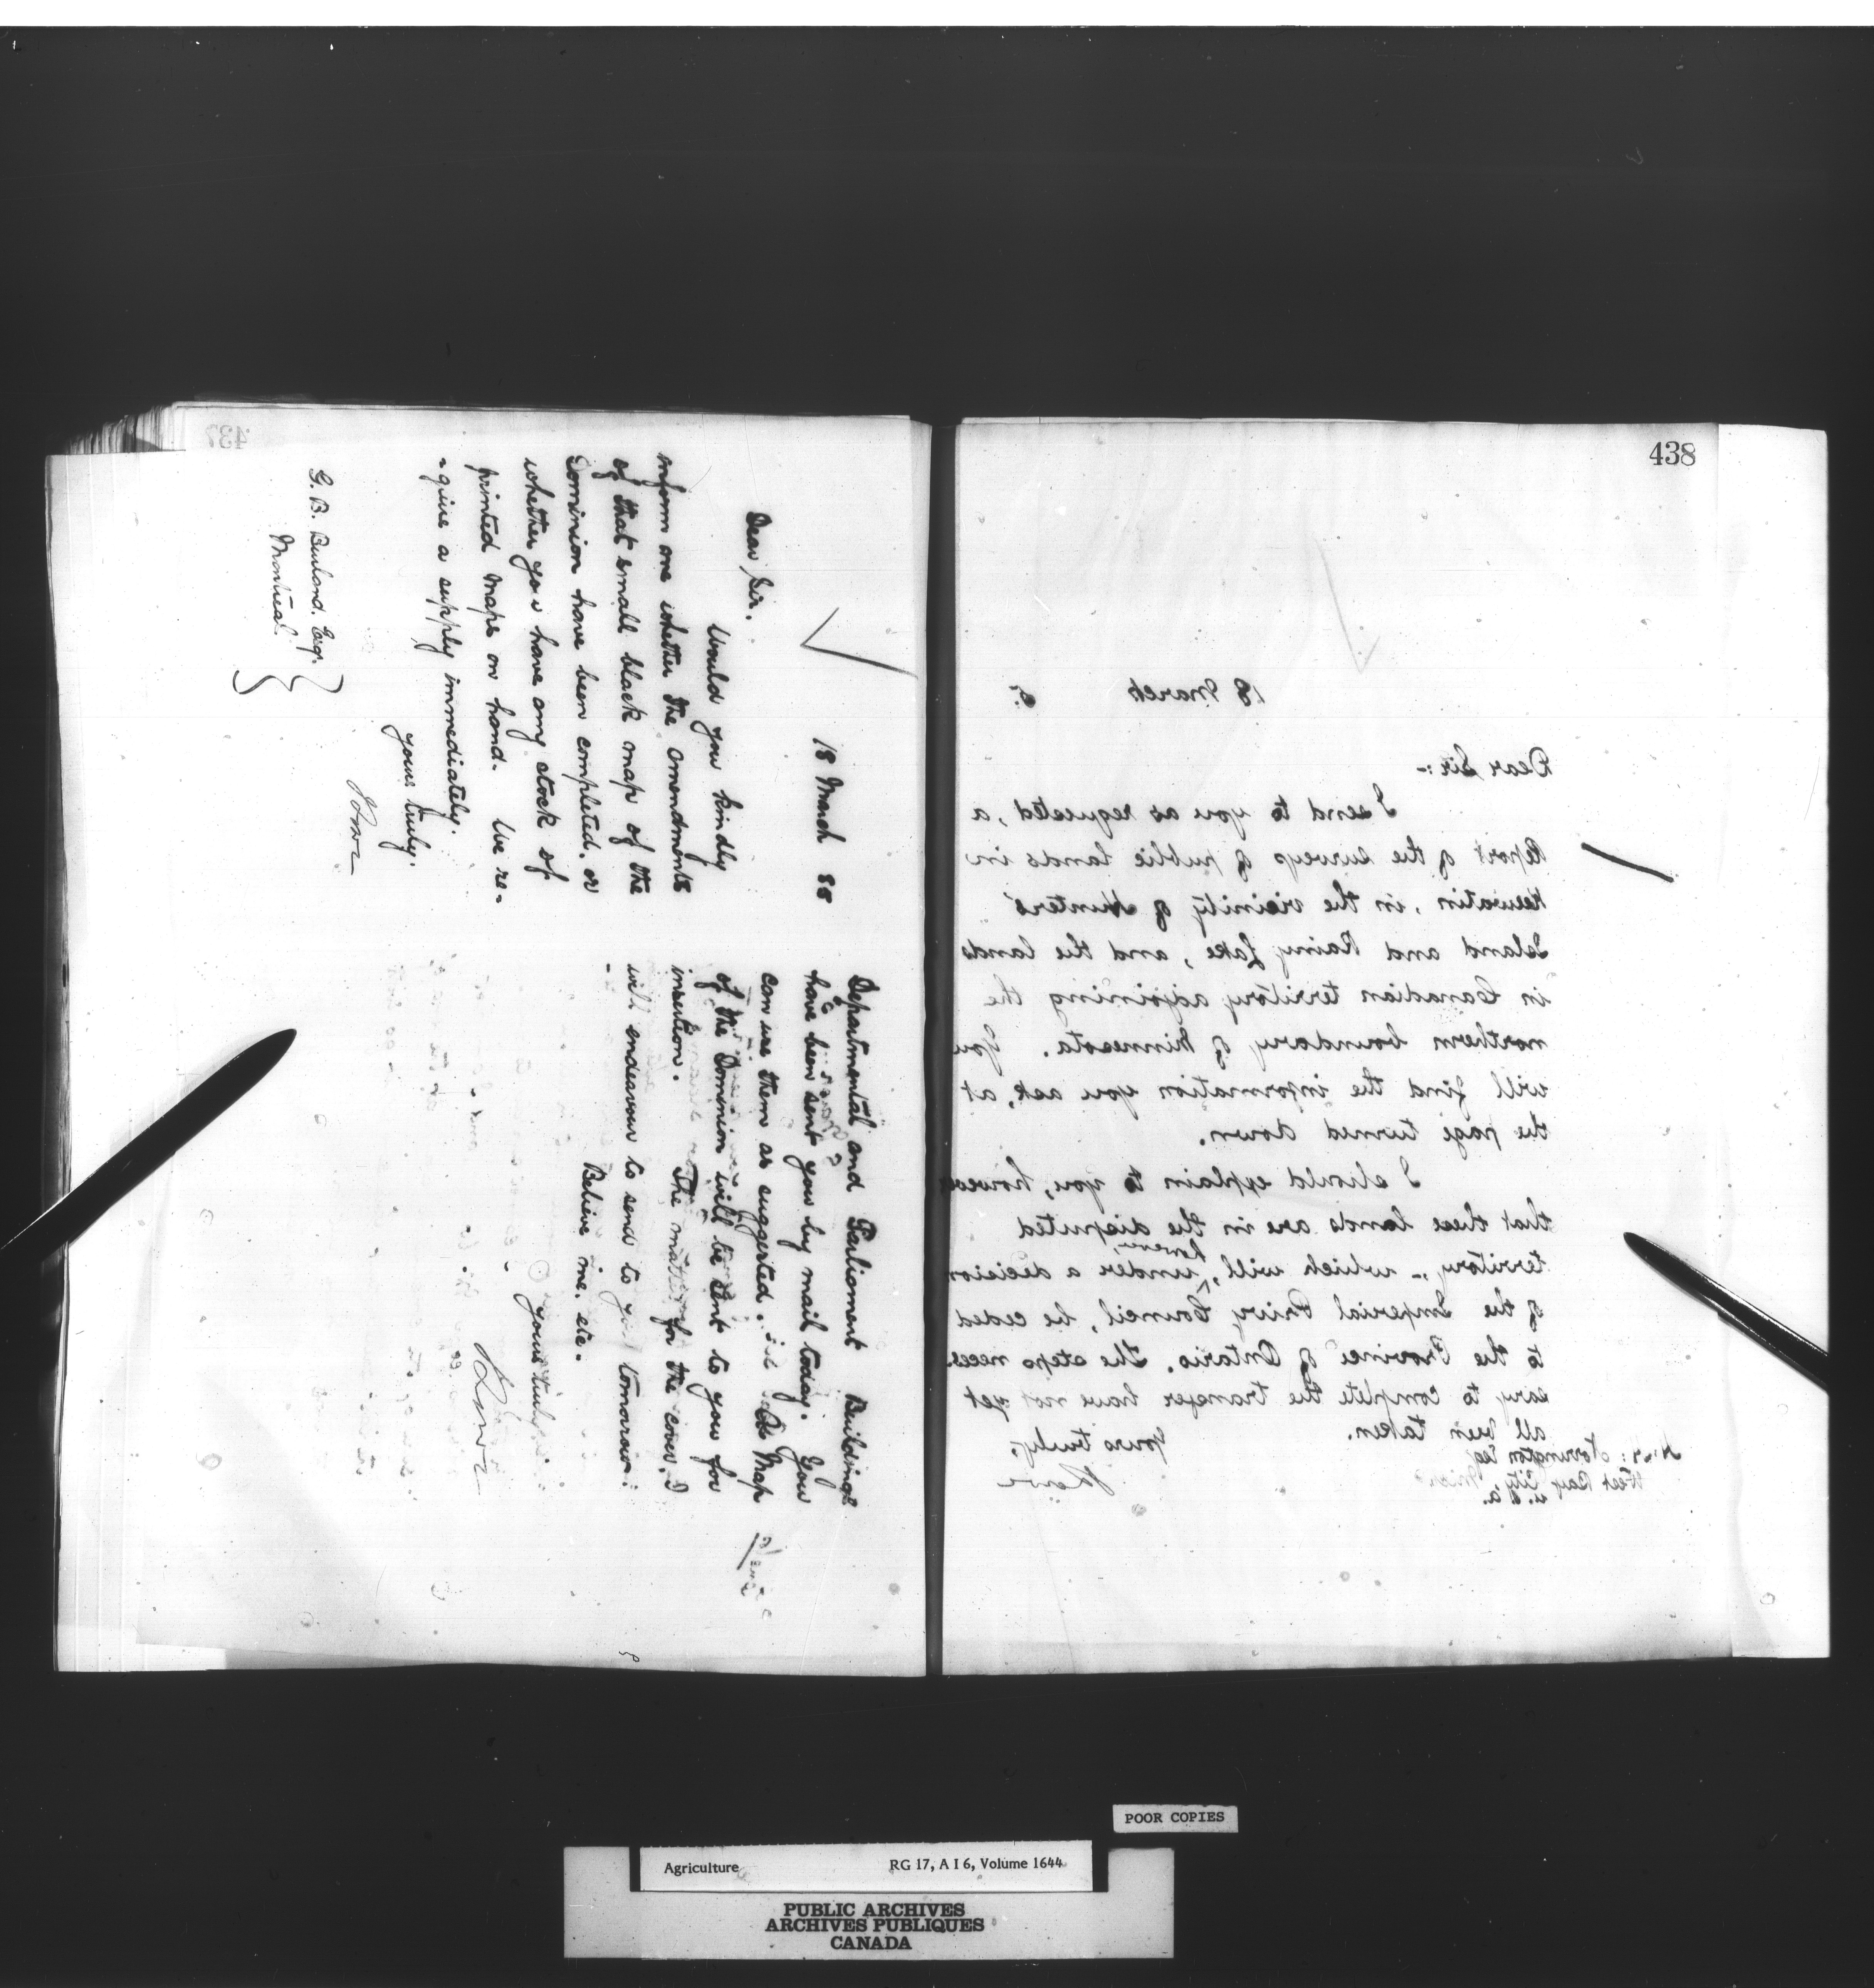 437
18 March 85
Dear Sir.
Would you kindly
inform me whether the amendments
of that small black map of the
Dominion have been completed. or
whether you have any stock of
printed maps on hand. We re-
-quire a supply immediately.
yours truly.
G. B. Burland. Esq.
Montreal.
Departmental and Parliament Buildings
have been sent you by mail today. You
can use them as suggested. Map
of the Dominion will be sent to you for
insertion. The matter for the cover. I
will endeavour to send to you tomorrow.
Believe me. etc.
yours truly
438
18 March 5.
Dear Sir:-
I send to you as requested, a
Report of the surveys of public lands in
Keewatin, in the vicinity of Hunters'
Island and Rainy Lake, and the lands
in Canadian territory adjoining the
northern boundary of Minnesota. You
will find the information you ask, at
the page turned down.
I should explain to you, however
that these lands are in the disputed
territory, - which will, however, under a decision
of the Imperial Privy Council, be ceded
to the Province of Ontario. The steps neces-
sary to complete the transfer have not yet
all been taken.
Yours truly,
Lowe
Norrington Esq
West Bay City, Mich
U.S.a.
POOR COPIES
Agriculture RG 17, A I 6, Volume 1644
PUBLIC ARCHIVES
ARCHIVES PUBLIQUES
CANADA